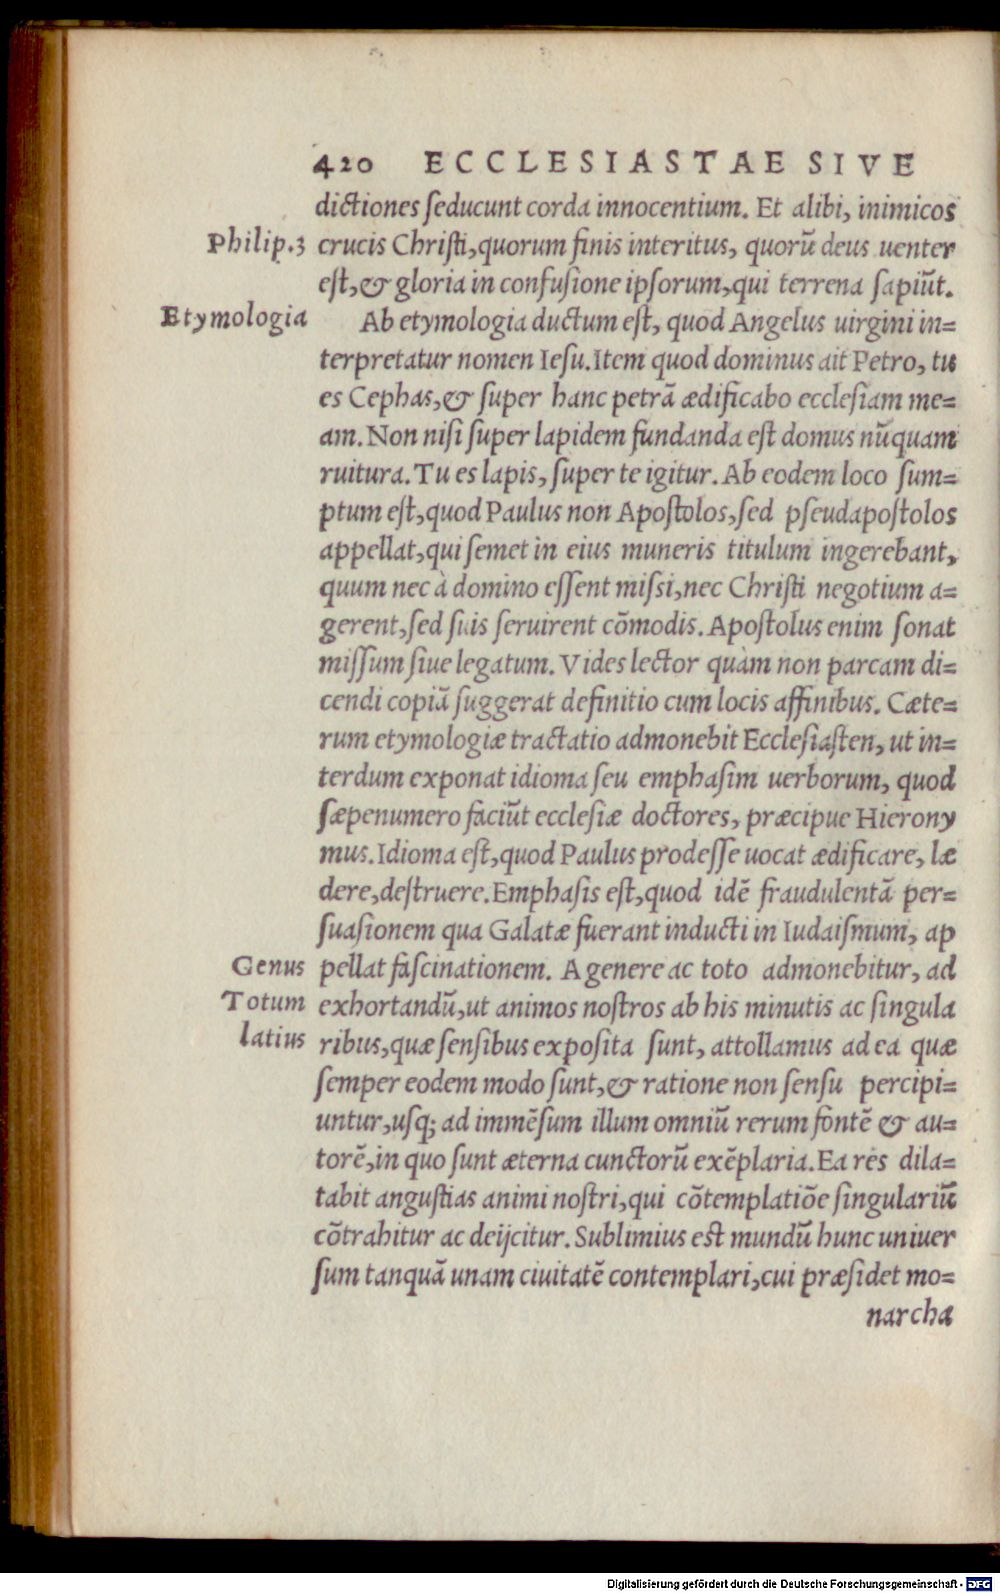 420 ECCLESIASTAE SIVE
dictiones ſeducunt corda innocentium. Et alibi, inimicos
Philip.3 crucis Chriſti, quorum finis interitus, quorũ deus uenter
eſt, & gloria in confuſione ipſorum, qui terrena ſapiũt.
Etymologia Ab etymologia ductum eſt, quod Angelus uirgini in=
terpretatur nomen Ieſu. Item quod dominus ait Petro, tu
es Cephas, & ſuper hanc petrã ædificabo eccleſiam me=
am. Non niſi ſuper lapidem fundanda eſt domus nũquam
ruitura. Tu es lapis, ſuper te igitur. Ab eodem loco ſum=
ptum eſt, quod Paulus non Apoſtolos, ſed pſeudapoſtolos
appellat, qui ſemet in eius muneris titulum ingerebant,
quum nec à domino eſſent miſsi, nec Chriſti negotium a=
gerent, ſed ſuis ſeruirent cõmodis. Apoſtolus enim ſonat
miſſum ſiue legatum. Vides lector quàm non parcam di=
cendi copiã ſuggerat definitio cum locis affinibus. Cæte=
rum etymologiæ tractatio admonebit Eccleſiaſten, ut in=
terdum exponat idioma ſeu emphaſim uerborum, quod
ſæpenumero faciũt eccleſiæ doctores, præcipue Hierony
mus. Idioma eſt, quod Paulus prodeſſe uocat ædificare, læ
dere, deſtruere. Emphaſis eſt, quod idẽ fraudulentã per=
ſuaſionem qua Galatæ fuerant inducti in Iudaiſmum, ap
Genus pellat faſcinationem. A genere ac toto admonebitur, ad
Totum exhortandũ, ut animos noſtros ab his minutis ac ſingula
latius ribus, quæ ſenſibus expoſita ſunt, attollamus ad ea quæ
ſemper eodem modo ſunt, & ratione non ſenſu percipi=
untur, uſq; ad immẽſum illum omniũ rerum fontẽ & au=
torẽ, in quo ſunt æterna cunctorũ exẽplaria. Ea res dila=
tabit anguſtias animi noſtri, qui cõtemplatiõe ſingulariũ
cõtrahitur ac deijcitur. Sublimius eſt mundũ hunc uniuer
ſum tanquã unam ciuitatẽ contemplari, cui præſidet mo=
narcha
Digitalisierung gefördert durch die Deutsche Forschungsgemeinschaft - DFG